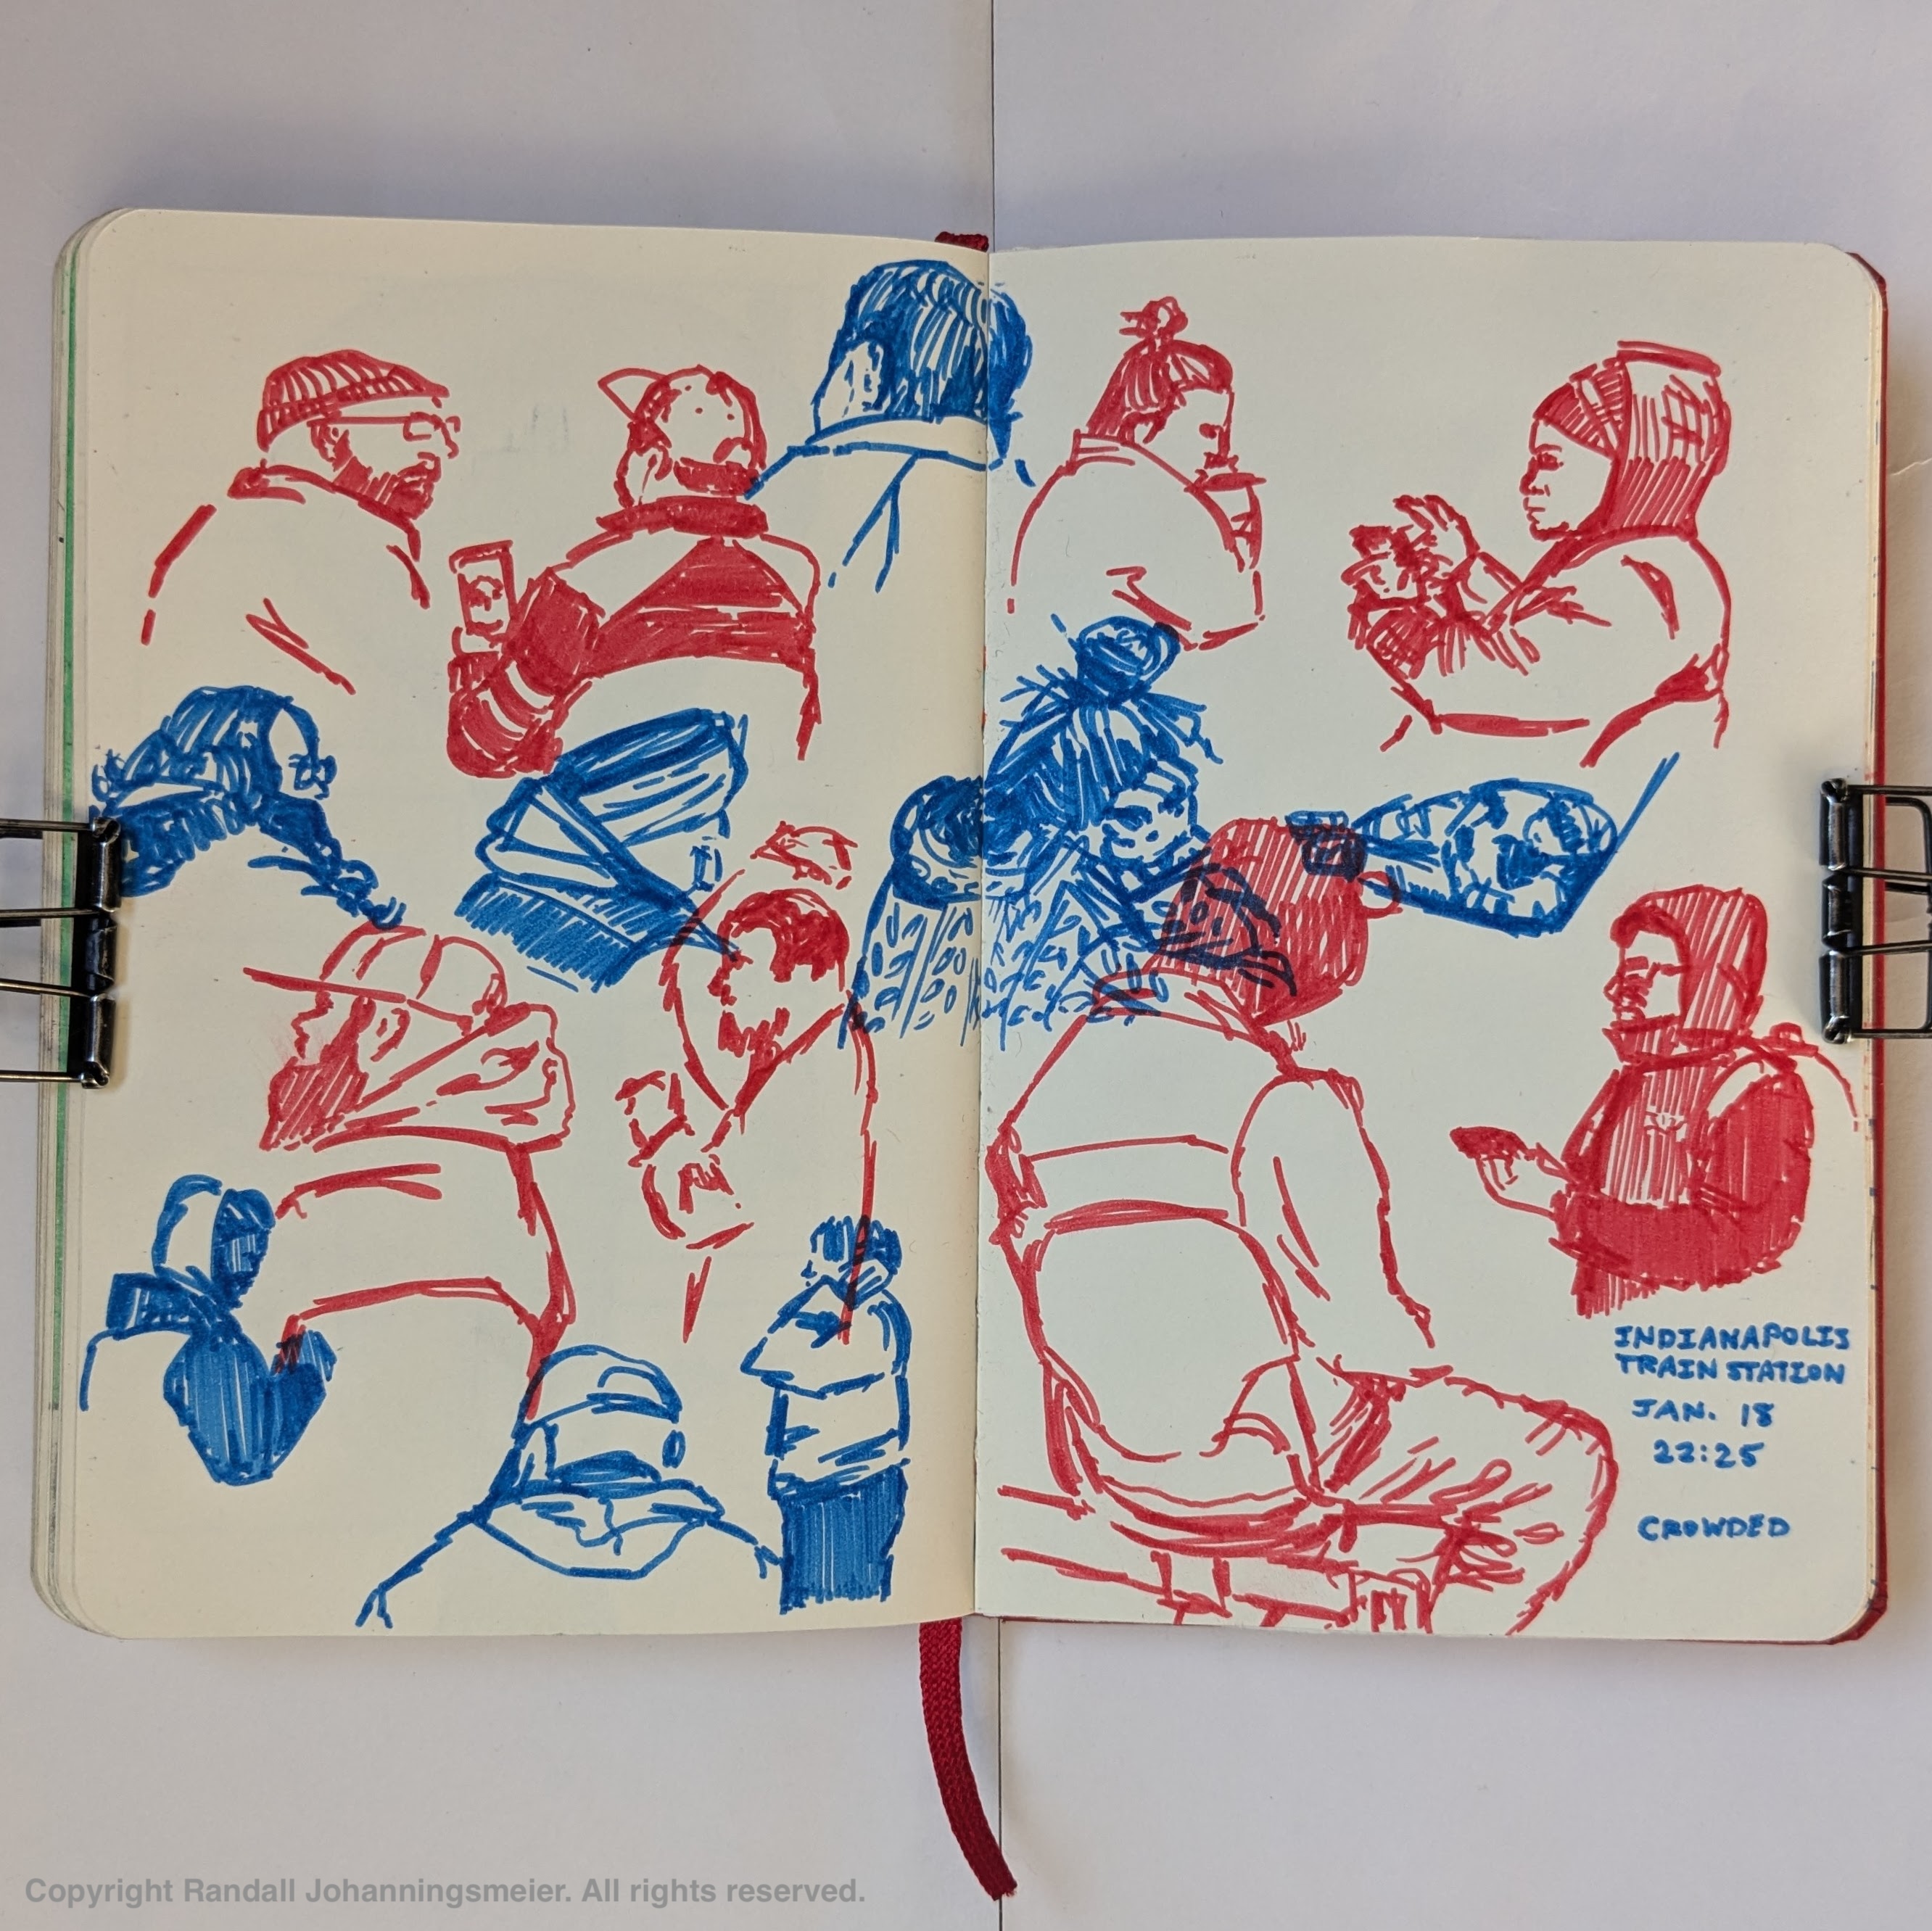 INDIANAPOLIS
TRAIN STATION
JAN. 18
22:25
CROWDED
Copyright Randall Johanningsmeier. All rights reserved.